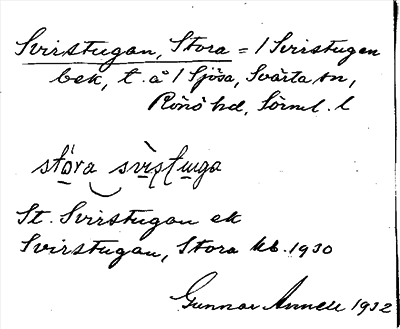 Svirstugan, Stora = / Svirstugen
bek, t. å / Sjösa, Svärta sn,
Rönö hd, Sörml. l
störa svistuga
St. Svirstugan ek
Svirstugan, Stora kb. 1930
Gunnar Annell 1932